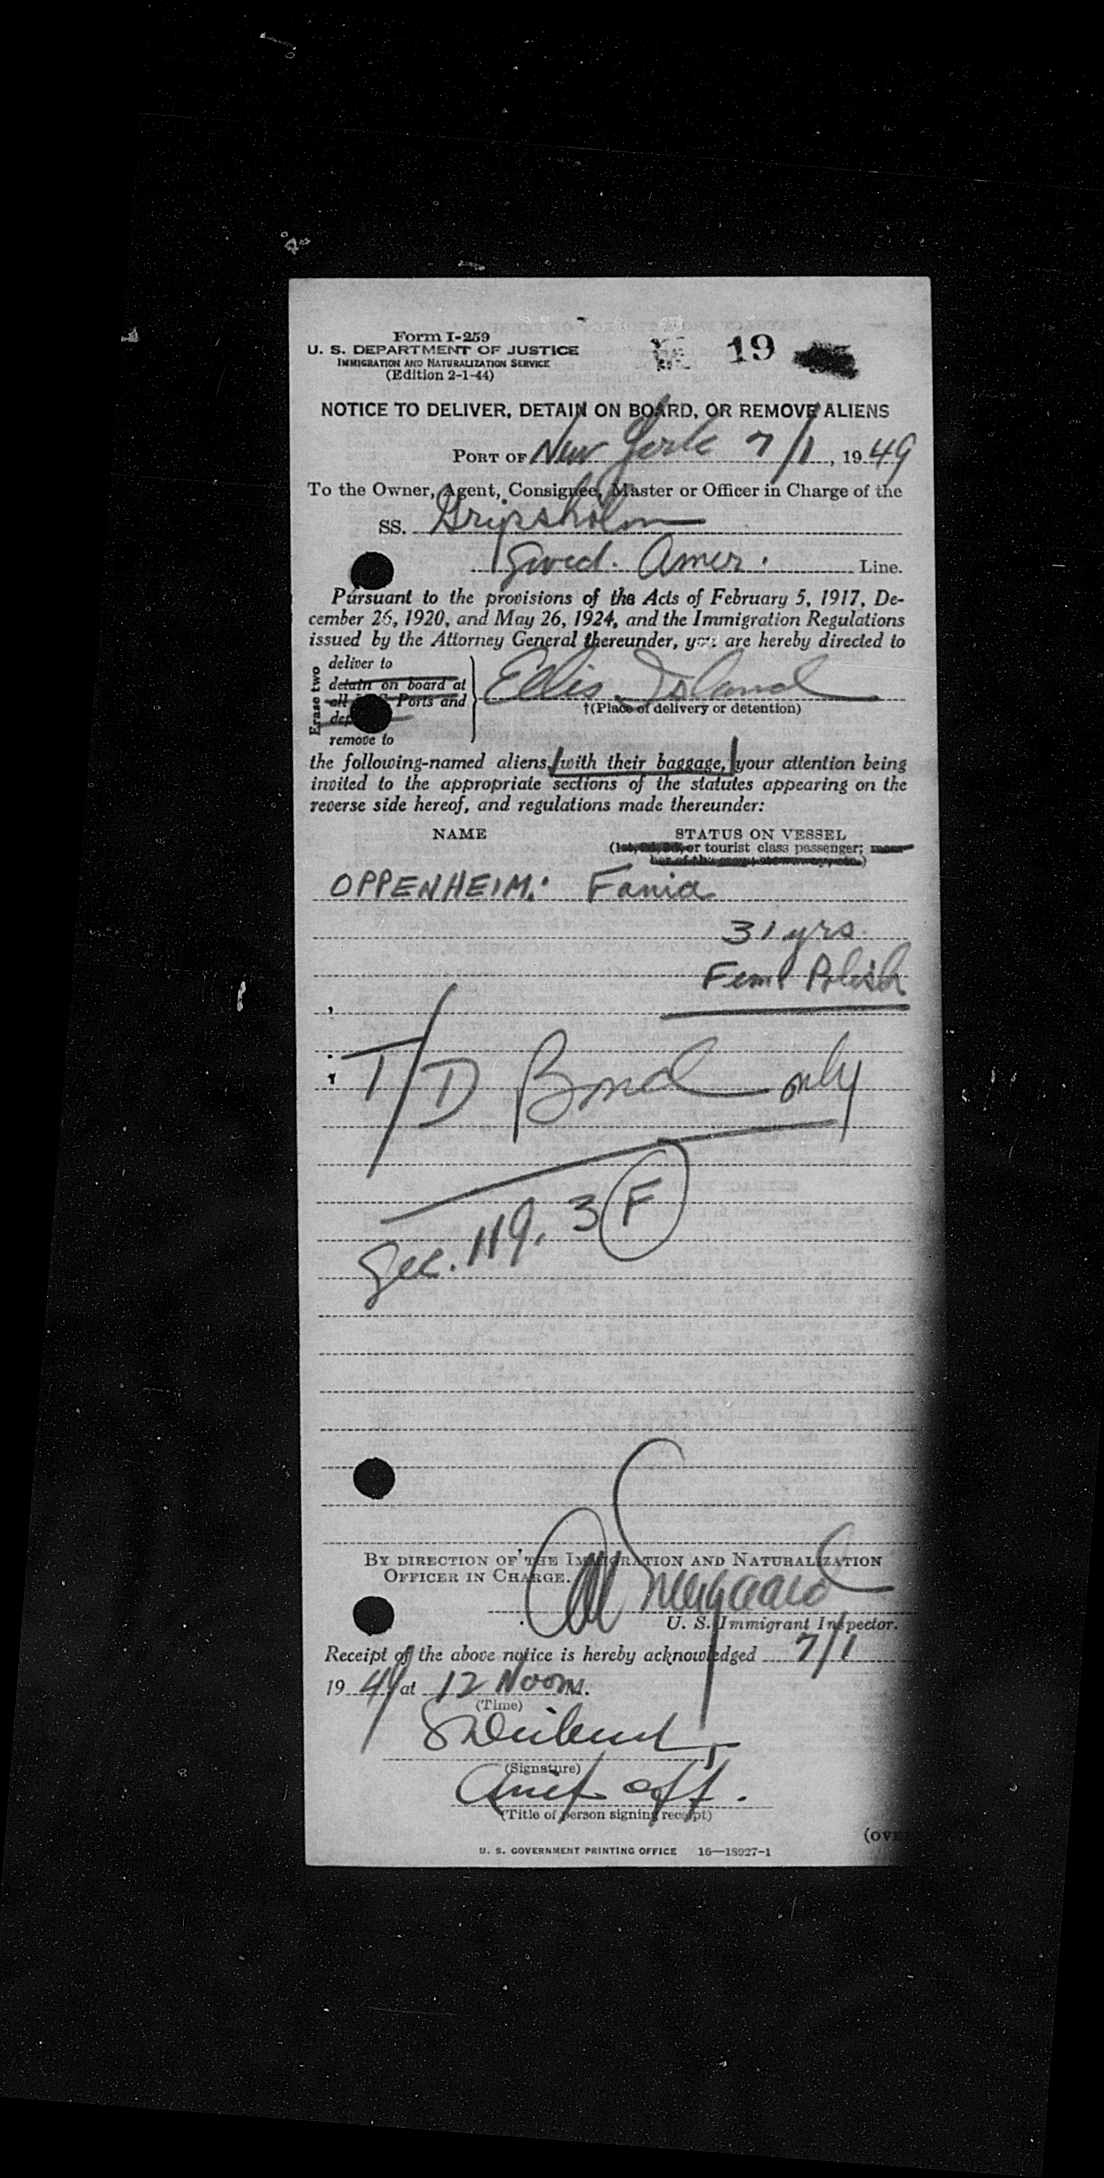 Form I-259
U. S. DEPARTMENT OF JUSTICE
IMMIGRATION AND NATURALIZATION SERVICE
(Edition 2-1-44)
19
NOTICE TO DELIVER, DETAIN ON BOARD, OR REMOVE ALIENS
PORT OF New York 7/1, 1949
To the Owner, Agent, Consignee, Master or Officer in Charge of the
SS. Gripsholm
Swed. Amer. Line.
Pursuant to the provisions of the Acts of February 5, 1917, De-
cember 26, 1920, and May 26, 1924, and the Immigration Regulations
issued by the Attorney General thereunder, you are hereby directed to
Erase two
deliver to
detain on board at
all Ports and
remove to
Ellis Island
†(Place of delivery or detention)
the following-named aliens, with their baggage, your attention being
invited to the appropriate sections of the statutes appearing on the
reverse side hereof, and regulations made thereunder:
NAME STATUS ON VESSEL
or tourist class passenger;
OPPENHEIM: Fania
31 yrs.
Fem Polish
T/D Bond only
Sec. 119. 3 F
BY DIRECTION OF THE IMMIGRATION AND NATURALIZATION
OFFICER IN CHARGE.
U. S. Immigrant Inspector.
Receipt of the above notice is hereby acknowledged 7/1
1949 at 12 Noon m.
(Time)
(Signature)
off.
(Title of person signing receipt)
U. S. GOVERNMENT PRINTING OFFICE 16—18927-1